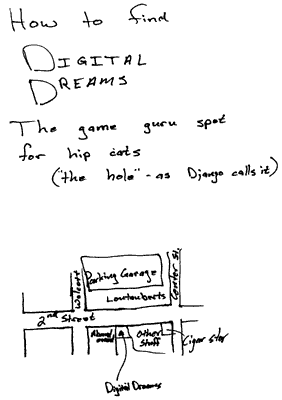 How to find
DIGITAL
DREAMS
The game guru spot
for hip cats
("the hole" - as Django calls it)
Parking Garage
Walcott
Center St.
2nd Street
Other
Stuff
Cigar stor
Digital Dreams